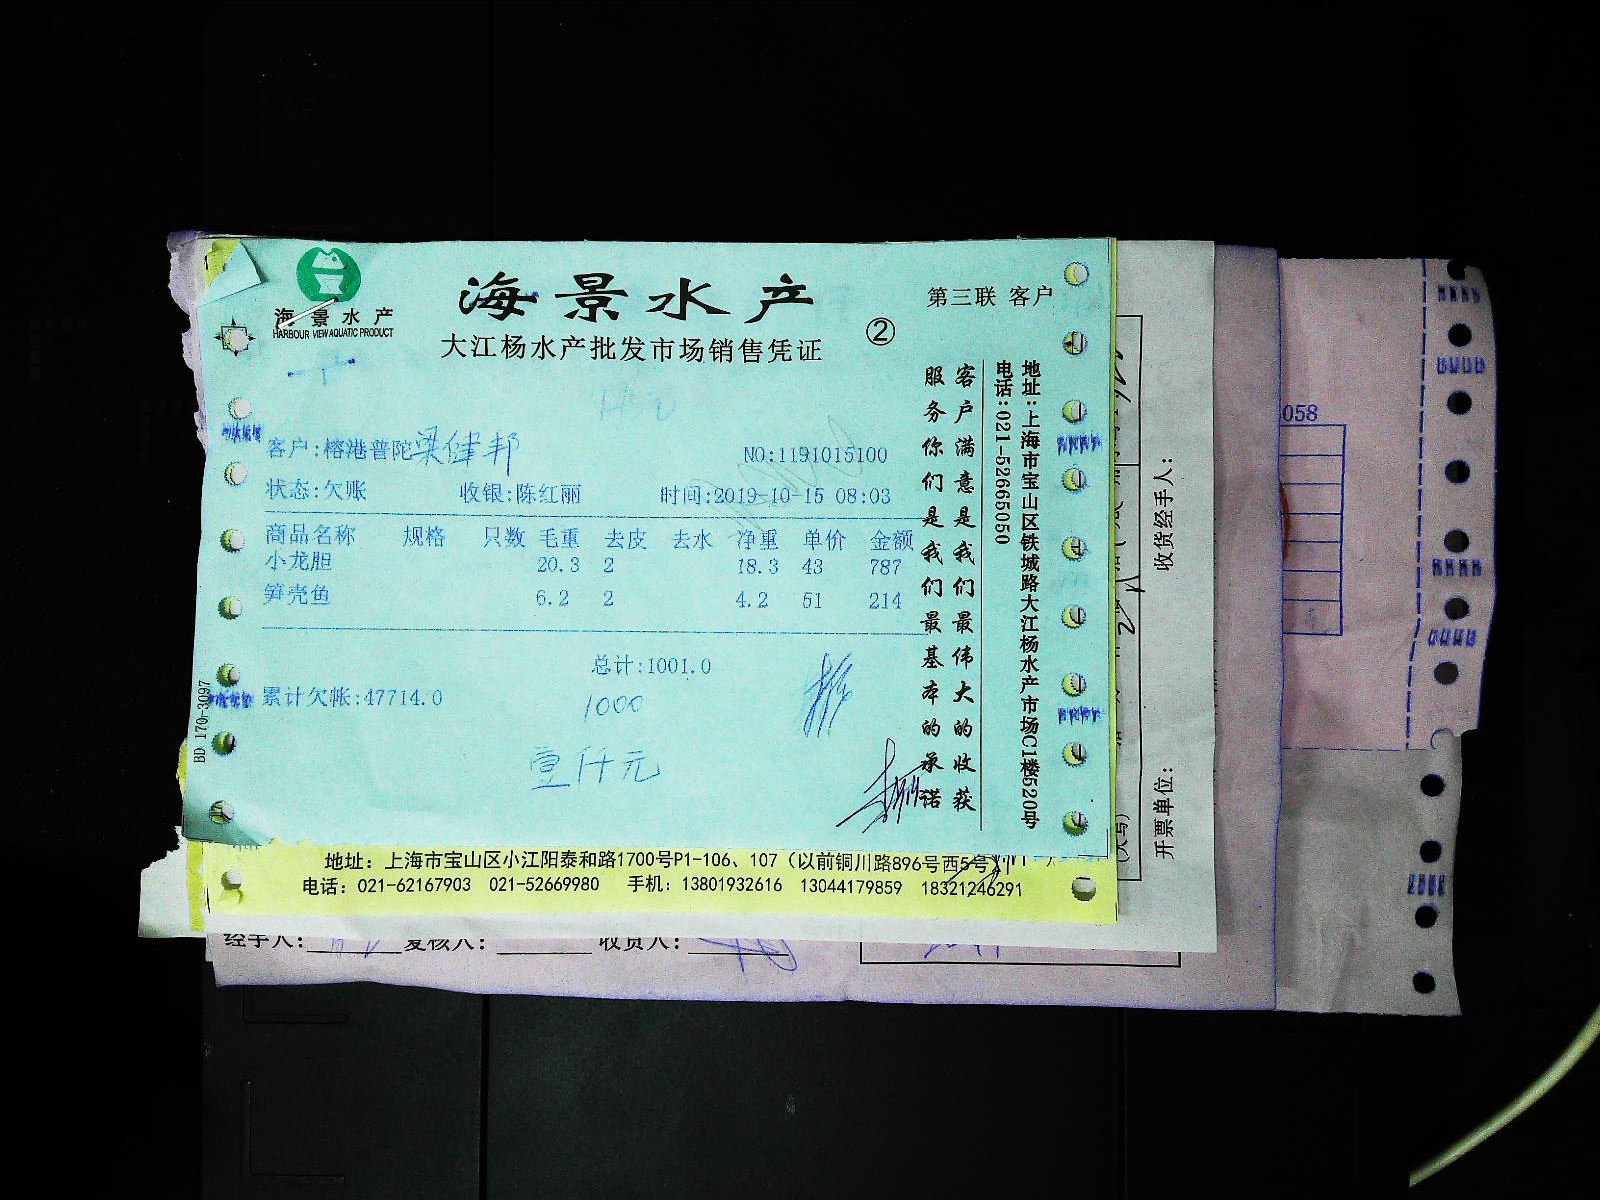 海景水产
HARBOUR VIEW AQUATIC PRODUCT
海景水产
大江杨水产批发市场销售凭证
②
第三联 客户
客户:榕港普陀梁健邦
NO:1191015100
状态:欠账 收银:陈红丽 时间:2019-10-15 08:03
商品名称 规格 只数 毛重 去皮 去水 净重 单价 金额
小龙胆 20.3 2 18.3 43 787
笋壳鱼 6.2 2 4.2 51 214
总计:1001.0
累计欠帐:47714.0
1000
壹仟元
客户满意是我们最伟大的收获
服务你们是我们最基本的承诺
地址:上海市宝山区铁城路大江杨水产市场C1楼520号
电话:021-52665050
BD 170-3097
地址：上海市宝山区小江阳泰和路1700号P1-106、107（以前铜川路896号西5号）
电话：021-62167903 021-52669980 手机：13801932616 13044179859 18321246291
收货经手人：
开票单位：
经手人： 复核人： 收货人：
058